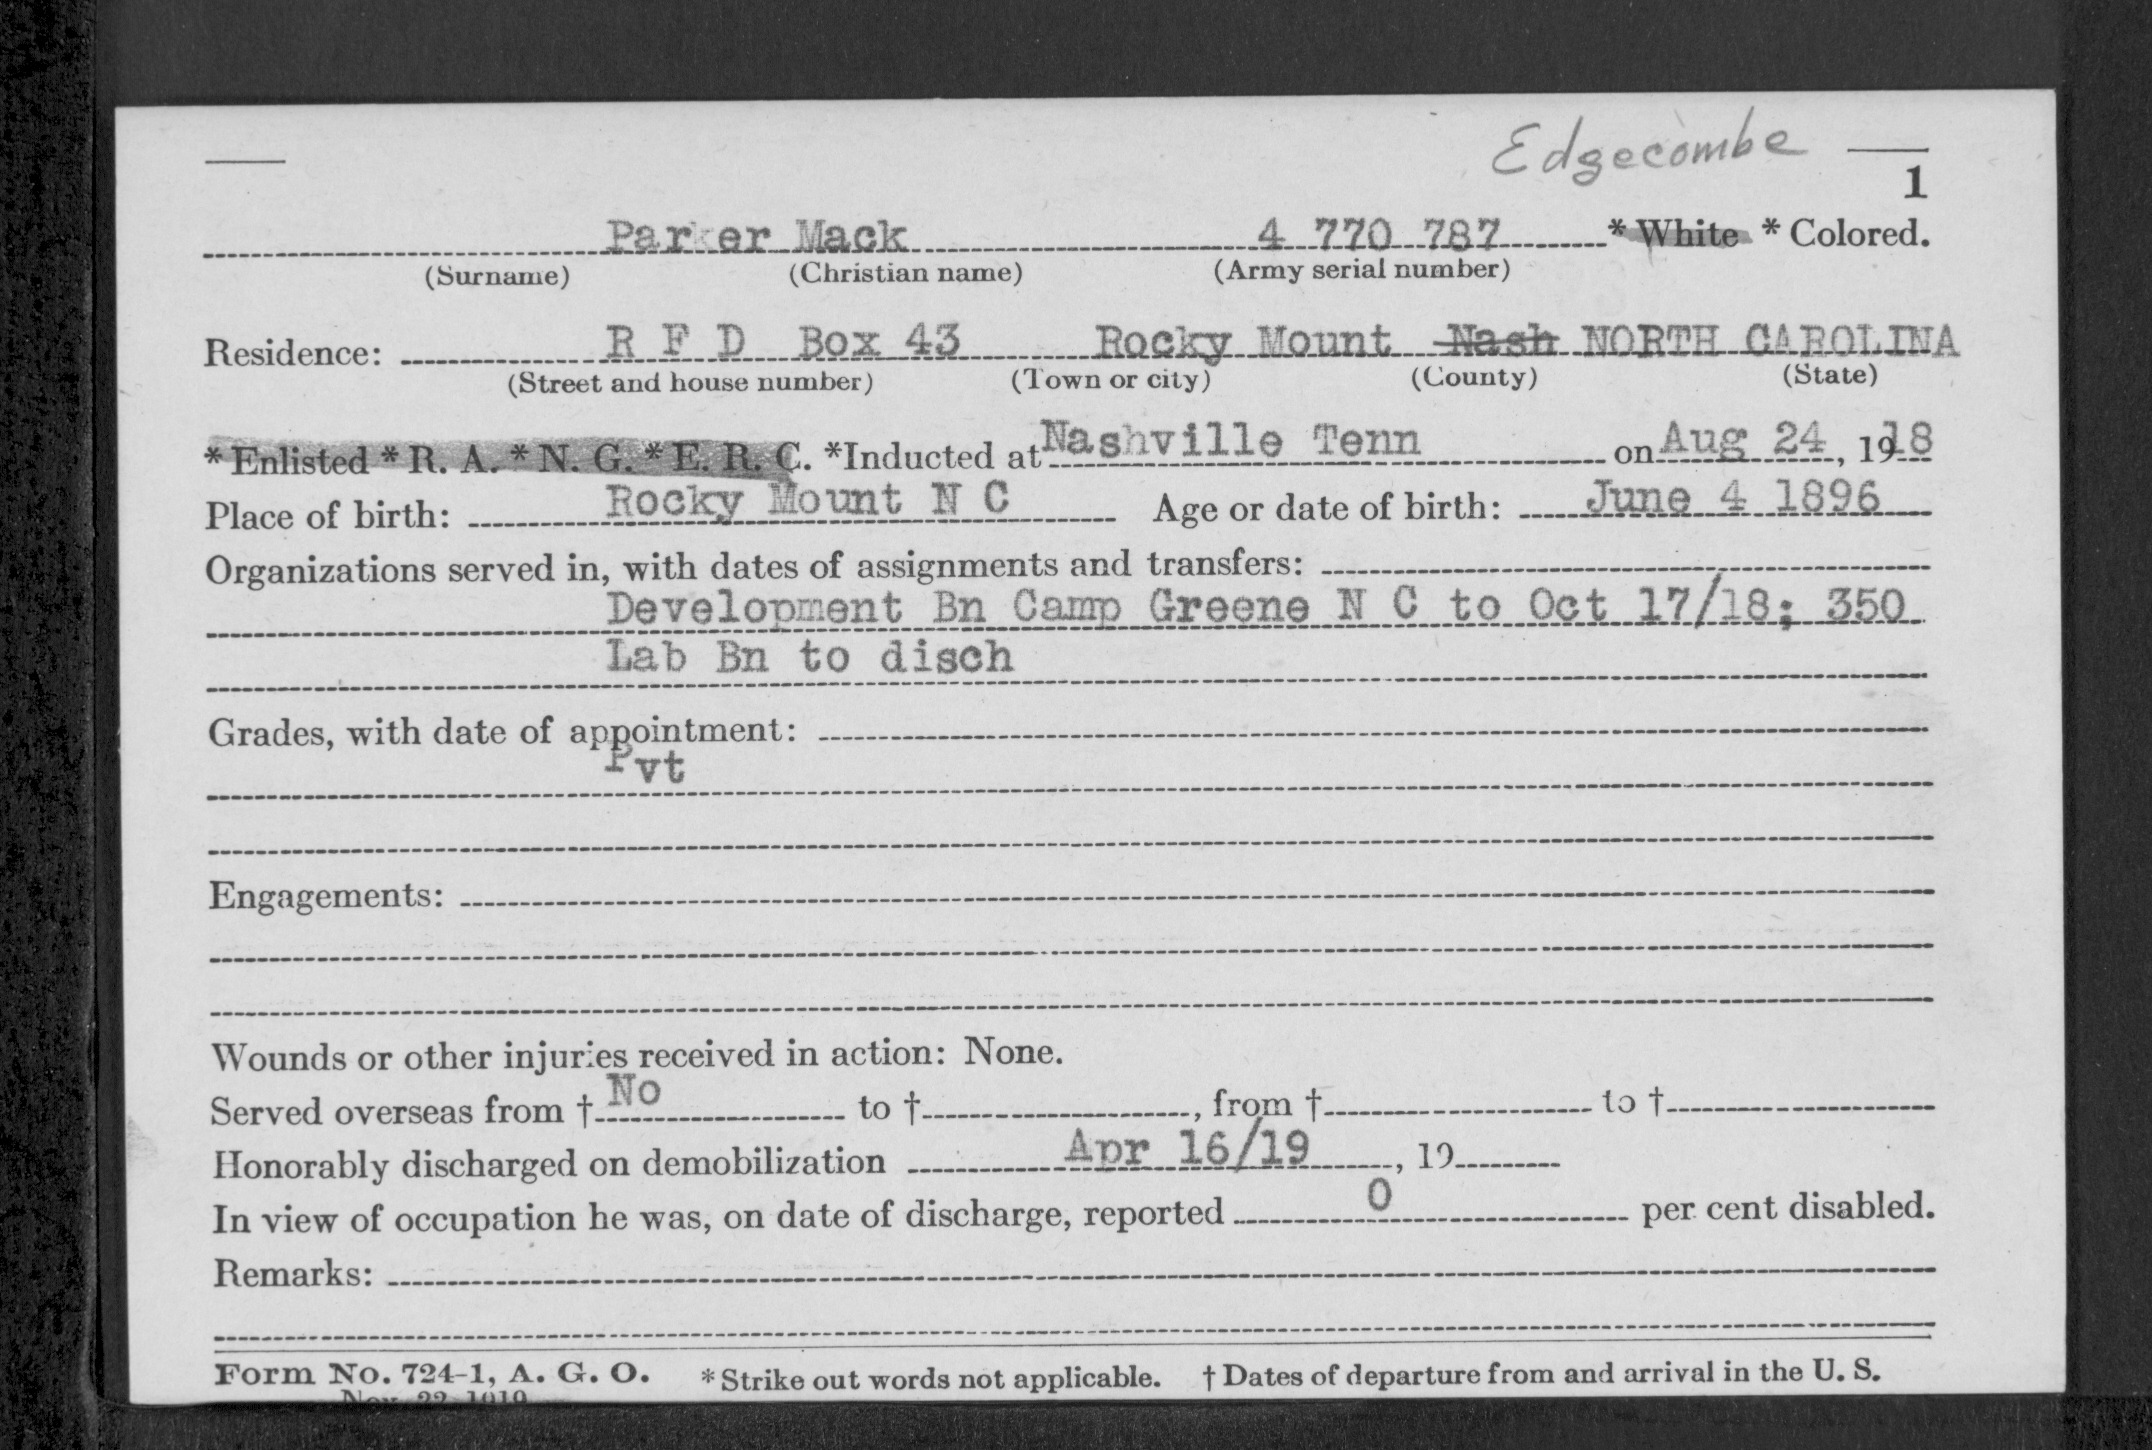 Edgecombe
1
Parker Mack 4 770 787 * White * Colored.
(Surname) (Christian name) (Army serial number)
Residence: R F D Box 43 Rocky Mount Nash NORTH CAROLINA
(Street and house number) (Town or city) (County) (State)
* Enlisted * R. A. * N. G. * E. R. C. *Inducted at Nashville Tenn on Aug 24, 1918
Place of birth: Rocky Mount N C Age or date of birth: June 4 1896
Organizations served in, with dates of assignments and transfers:
Development Bn Camp Greene N C to Oct 17/18; 350
Lab Bn to disch
Grades, with date of appointment:
Pvt
Engagements:
Wounds or other injuries received in action: None.
Served overseas from † No to †, from † to †
Honorably discharged on demobilization Apr 16/19, 19
In view of occupation he was, on date of discharge, reported 0 per cent disabled.
Remarks:
Form No. 724-1, A. G. O. * Strike out words not applicable. † Dates of departure from and arrival in the U. S.
Nov. 22, 1919